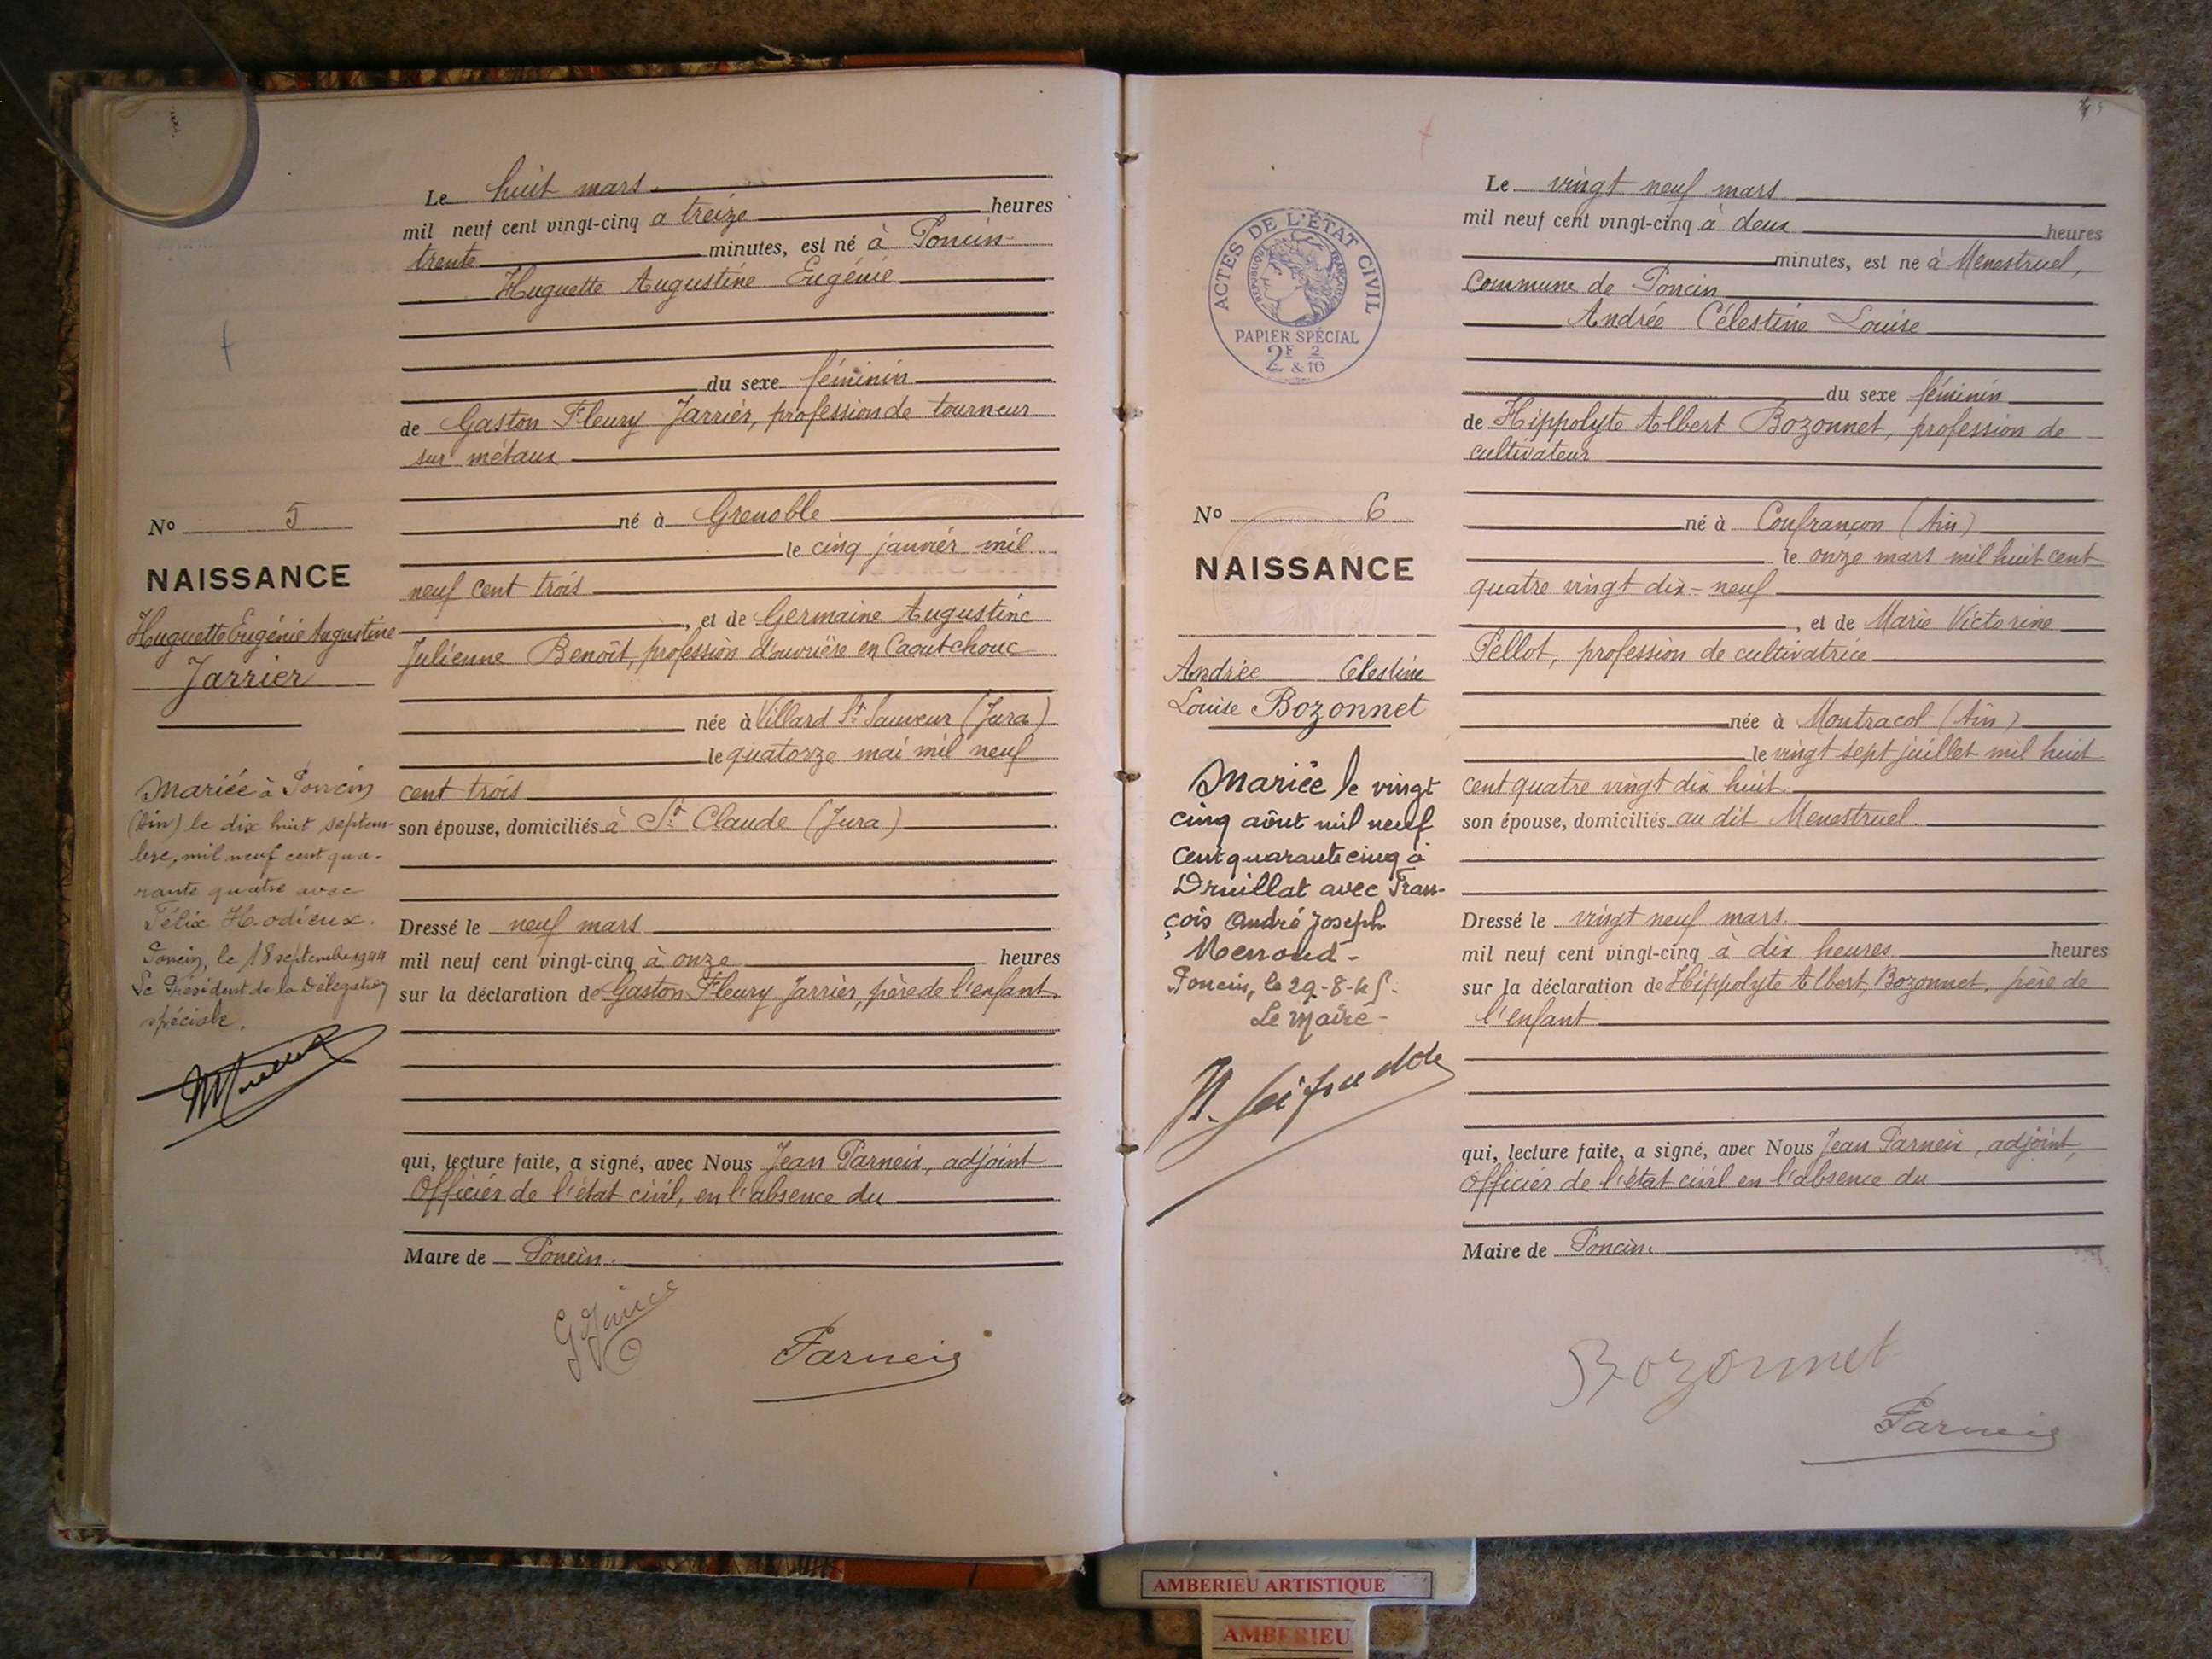 Le huit mars
mil neuf cent vingt-cinq a treize heures
trente minutes, est né à Poncin
Huguette Augustine Eugénie
du sexe féminin
de Gaston Fleury Jarrier, profession de tourneur
sur métaux
né à Grenoble
le cinq janvier mil
neuf cent trois
, et de Germaine Augustine
Julienne Benoît, profession d'ouvrière en Caoutchouc
née à Villard St Sauveur (Jura)
le quatorze mai mil neuf
cent trois
son épouse, domiciliés à St Claude (Jura)
Dressé le neuf mars
mil neuf cent vingt-cinq à onze heures
sur la déclaration de Gaston Fleury Jarrier, père de l'enfant.
qui, lecture faite, a signé, avec Nous Jean Parneix, adjoint
Officier de l'état civil, en l'absence du
Maire de Poncin.
Parneix
No 5
NAISSANCE
Huguette Eugénie Augustine
Jarrier
Mariée à Poncin
(Ain) le dix huit septem-
bre, mil neuf cent qua-
rante quatre avec
Félix Hodieux.
Poncin, le 18 septembre 1944
Le Président de la Délégation
spéciale.
ACTES DE L'ÉTAT CIVIL
RÉPUBLIQUE FRANÇAISE
PAPIER SPÉCIAL
2F & 2/10
No 6
NAISSANCE
Andrée Célestine
Louise Bozonnet
Mariée le vingt
cinq août mil neuf
cent quarante cinq à
Druillat avec Fran-
çois André Joseph
Poncin, le 29-8-45.
Le Maire -
Le vingt neuf mars
mil neuf cent vingt-cinq à deux heures
minutes, est né à Menestruel,
Commune de Poncin
Andrée Célestine Louise
du sexe féminin
de Hippolyte Albert Bozonnet, profession de
cultivateur
né à Confrançon (Ain)
le onze mars mil huit cent
quatre vingt dix-neuf
, et de Marie Victorine
Pellot, profession de cultivatrice
née à Montracol (Ain)
le vingt sept juillet mil huit
cent quatre vingt dix huit.
son épouse, domiciliés au dit Menestruel.
Dressé le vingt neuf mars.
mil neuf cent vingt-cinq à dix heures heures
sur la déclaration de Hippolyte Albert, Bozonnet, père de
l'enfant
qui, lecture faite, a signé, avec Nous Jean Parneix, adjoint,
Officier de l'état civil en l'absence du
Maire de Poncin.
Bozonnet
Parneix
AMBERIEU ARTISTIQUE
AMBERIEU